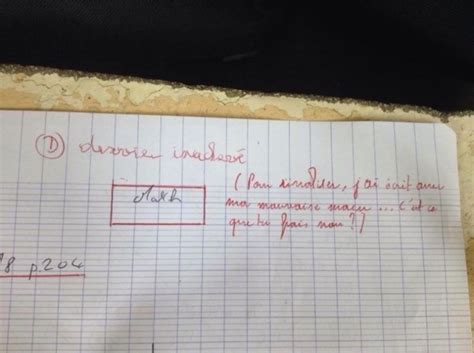 D dossier inachevé
Math
(Pour rivaliser, j'ai écrit avec
ma mauvaise main ... c'est ce
que tu fais non ?)
18 p.204